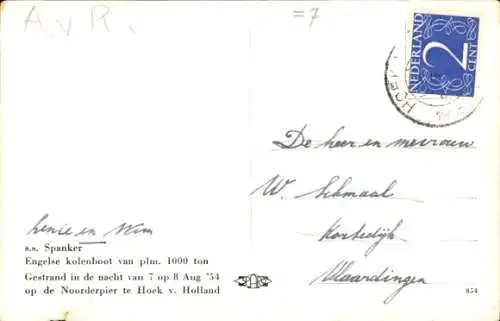 A v R.
=7
NEDERLAND
2
CENT
HOEK
De heer en mevrouw
W. Schmaal
Kortedijk
Vlaardingen
Lenie en Wim
s.s. Spanker
Engelse kolenboot van plm. 1000 ton
Gestrand in de nacht van 7 op 8 Aug '54
op de Noorderpier te Hoek v. Holland
954